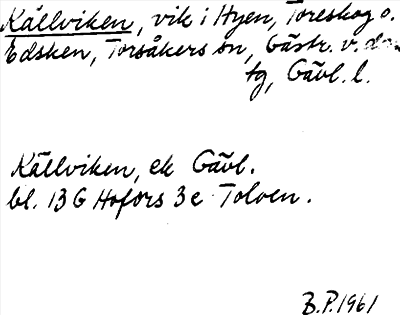 Källviken, vik i Hyen, Toreskog o.
Edsken, Torsåkers sn, Gästr. v. doms
tg, Gävl. l.
Källviken, ek Gävl.
bl. 13 G Hofors 3 e Tolven.
B.P. 1961